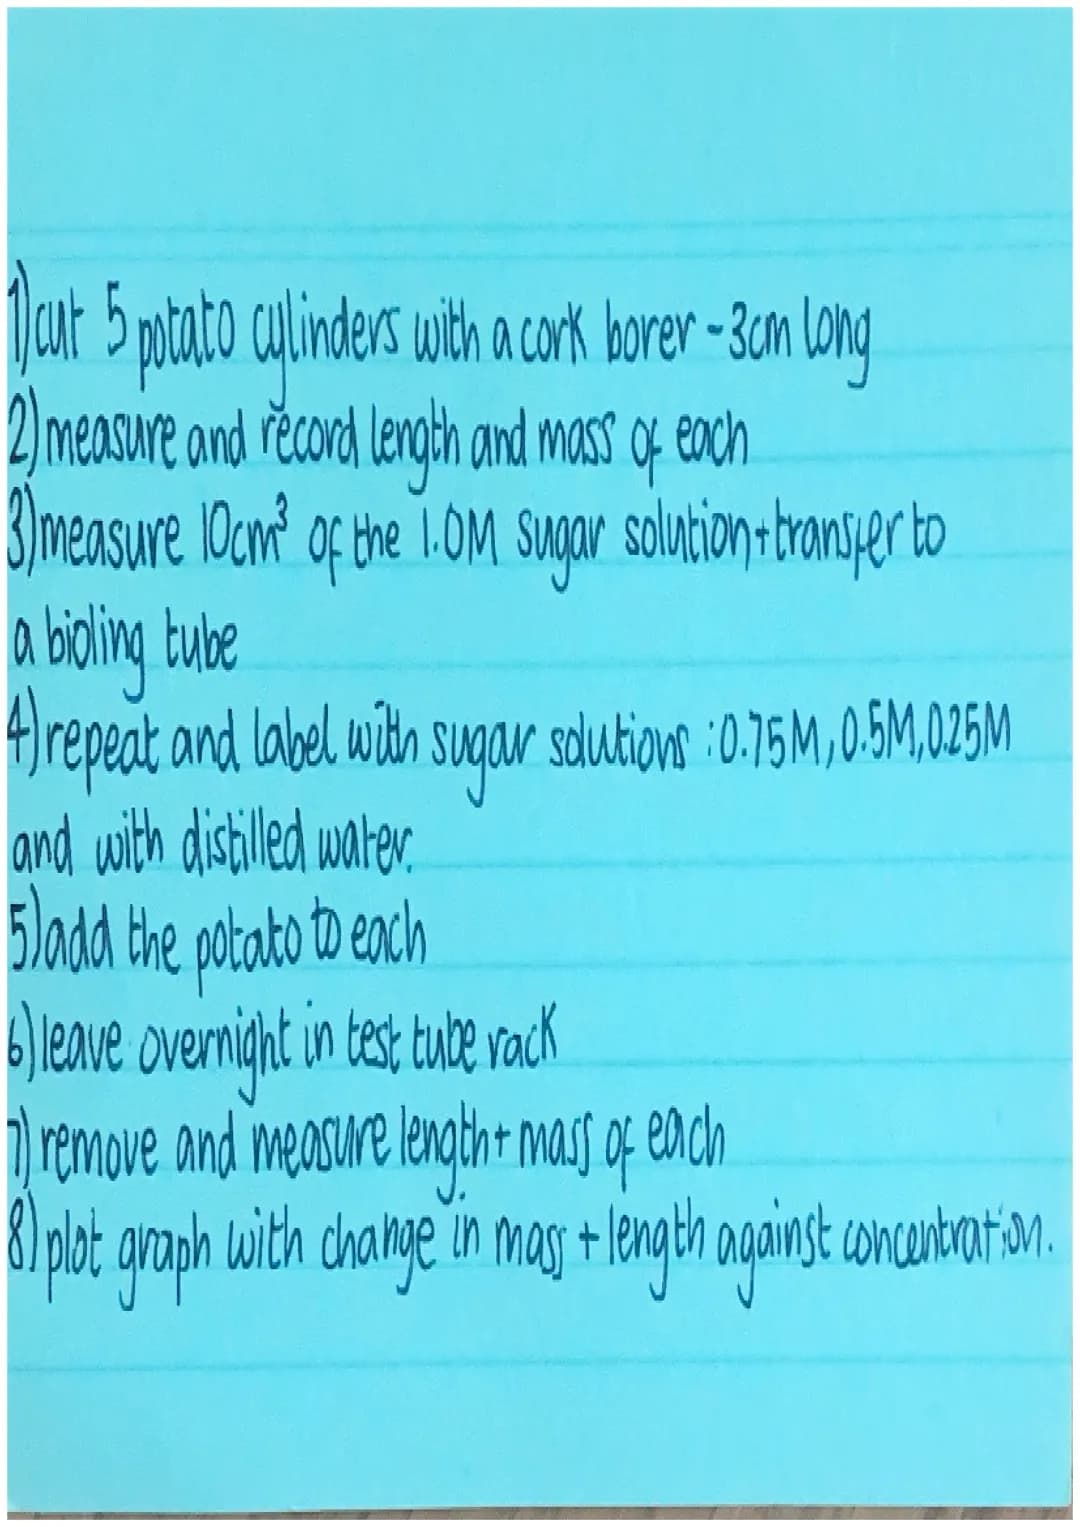 1) cut 5 potato cylinders with a cork borer - 3cm long
2) measure and record length and mass of each
3) measure 10cm³ of the 1.0M sugar solution + transfer to
a bioling tube
4) repeat and label with sugar solutions : 0.75M, 0.5M, 0.25M
and with distilled water.
5) add the potato to each
6) leave overnight in test tube rack
7) remove and measure length + mass of each
8) plot graph with change in mass + length against concentration.